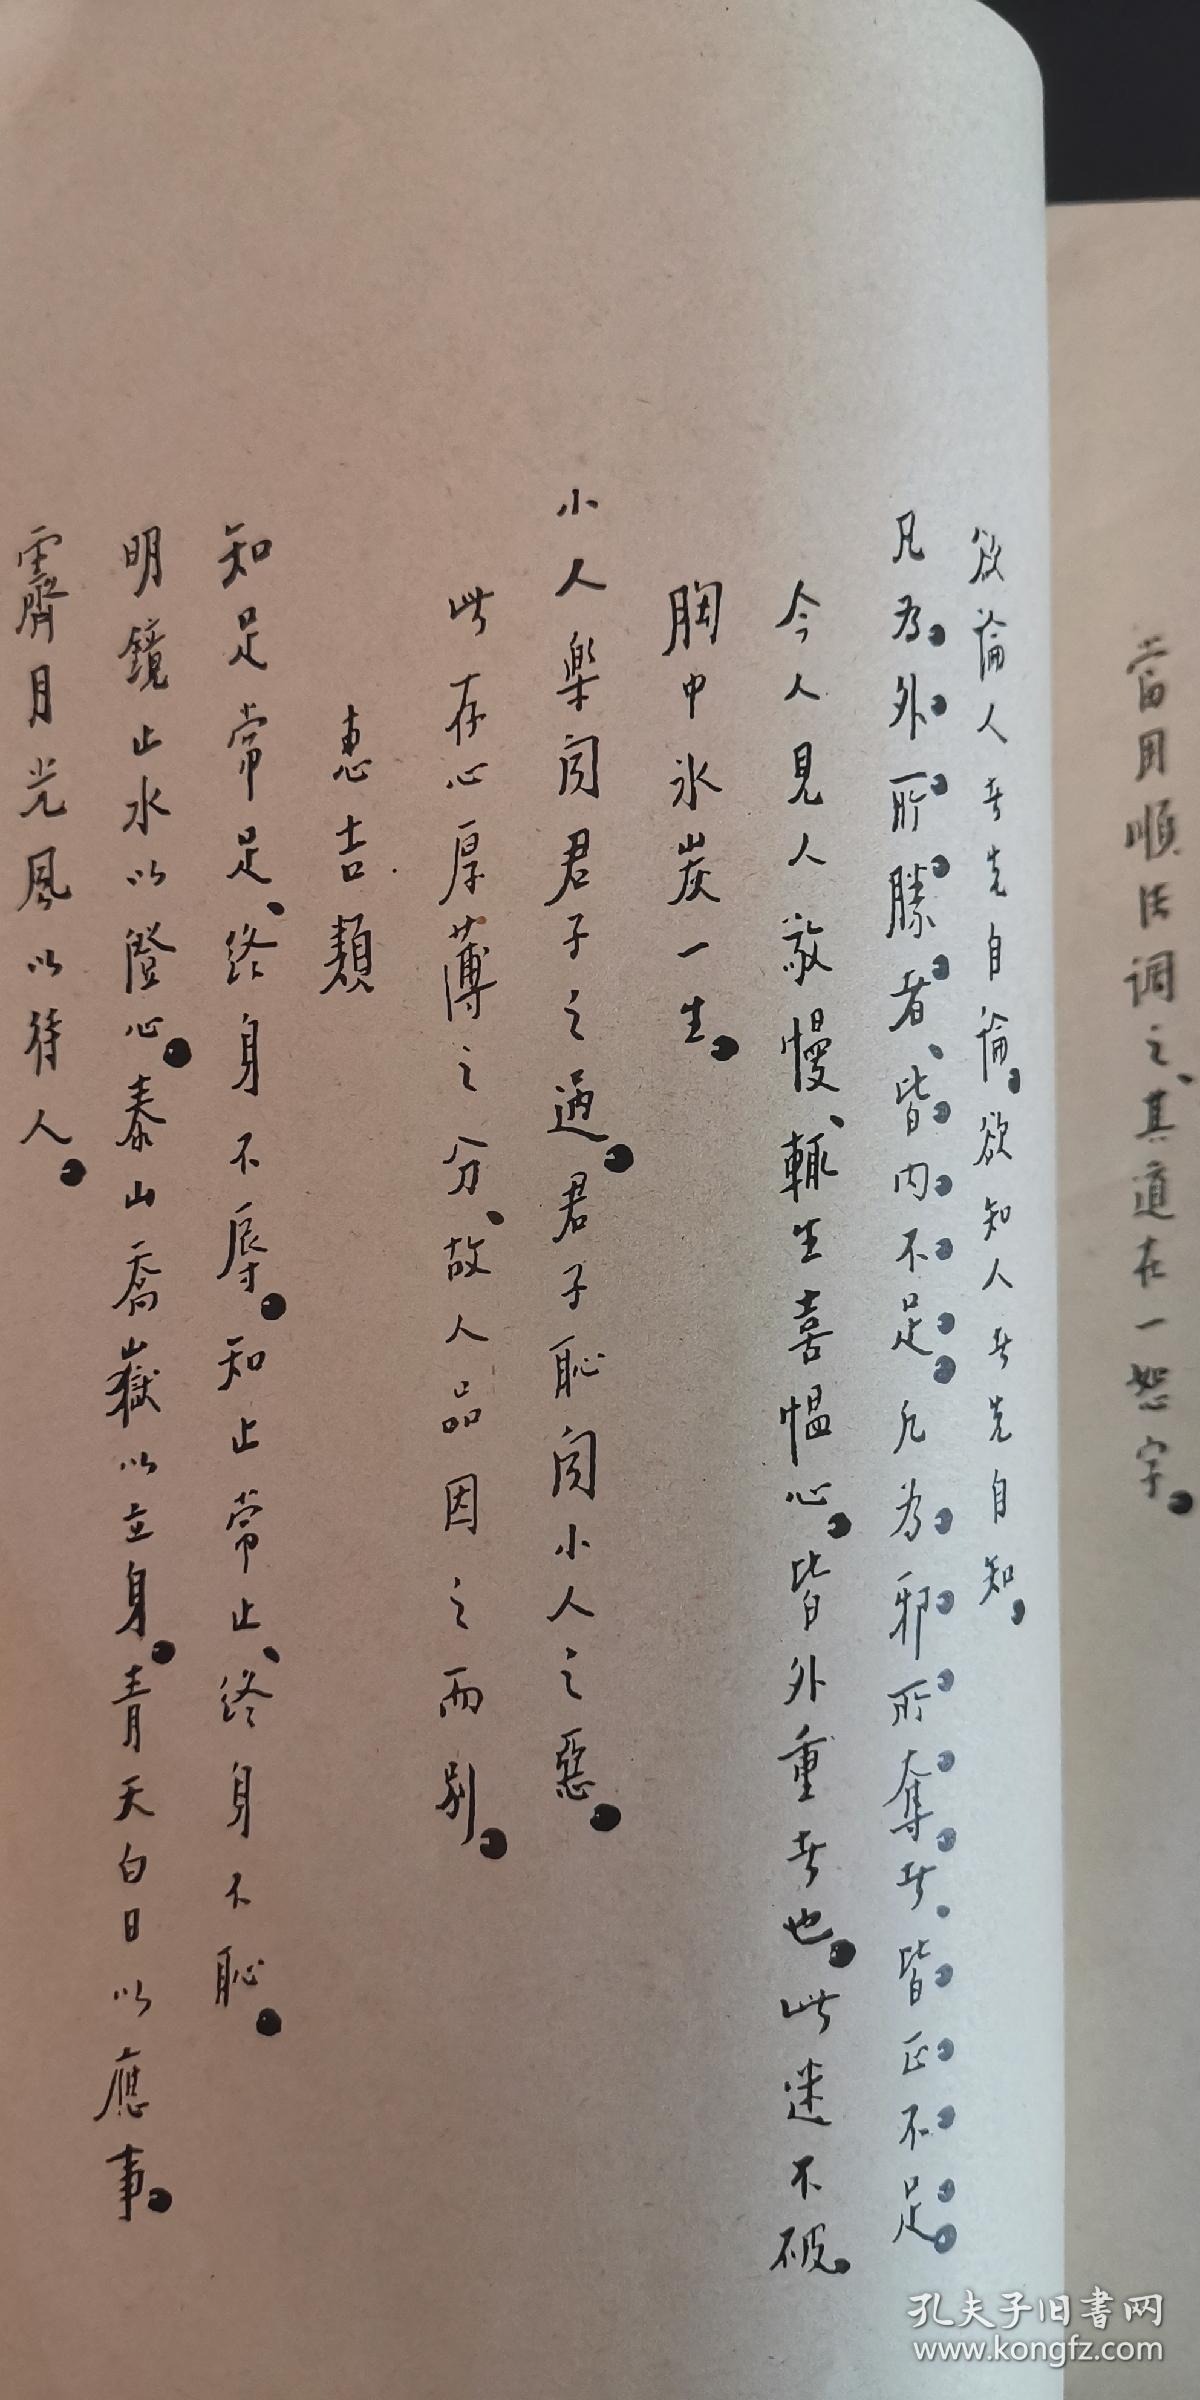 當用順法調之、其道在一恕字。
欲論人者先自論。欲知人者先自知。
凡為外所勝者、皆內不足。凡為邪所奪者、皆正不足。
今人見人敬慢、輒生喜慍心。皆外重者也。此迷不破。
胸中氷炭一生。
小人樂闻君子之過。君子恥闻小人之惡。
此存心厚薄之分、故人品因之而别。
惠吉類
知足常足、终身不辱。知止常止、终身不恥。
明鏡止水以澄心。泰山喬嶽以立身。青天白日以應事。
霽月光風以待人。
孔夫子旧書网
www.kongfz.com